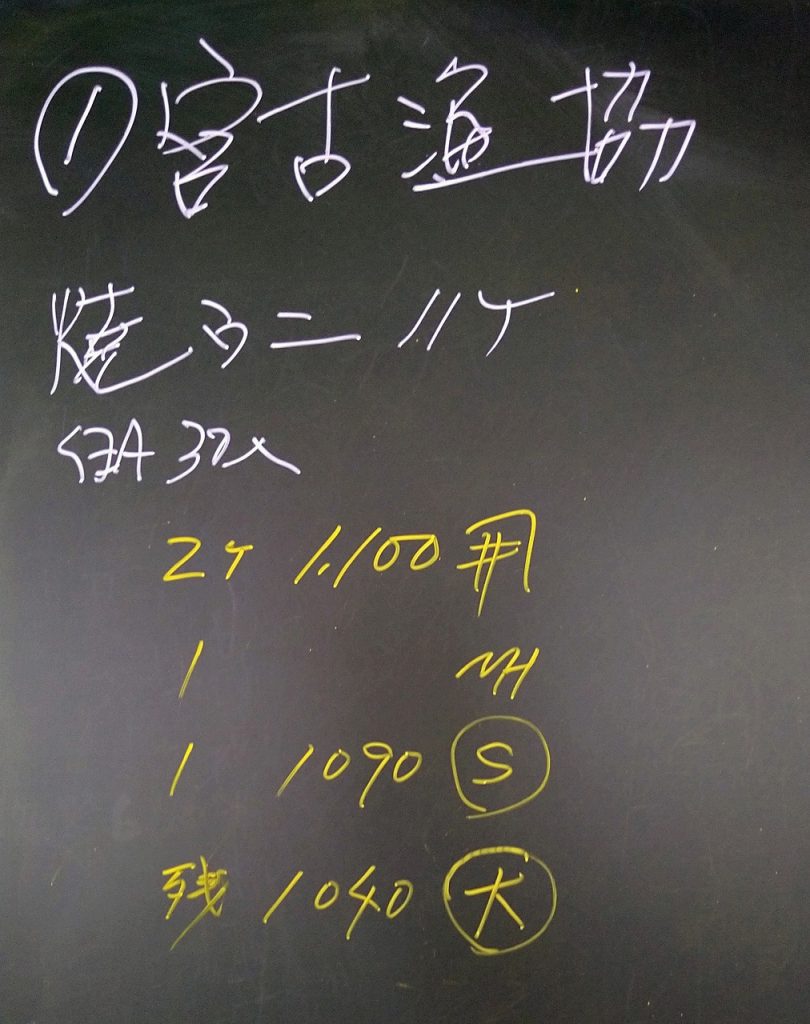 ①宮古漁協
焼ウニ 11ケ
32入
2ケ 1,100
1
1 1090 Ⓢ
残 1040 大